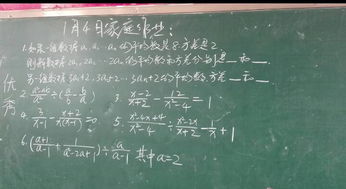 1月4日家庭作业:
1.如果一组数据a₁、a₂…aₙ的平均数是8,方差是2,
则新数据2a₁,2a₂…2aₙ的平均数和方差分别是__和__.
另一组数据3a₁+2,3a₂+2…3aₙ+2的平均数,方差__和__
2. ÷(a/b-b/a)
3. x-2/x+2-12/x²-4=1
4. 3/x-1-x+2/x(x-1)=0
5. x²-4x+4/x²-4÷x²-2x/x+2-1/x+1
6.(a+1/a-1+1/a²-2a+1)÷a/a-1 其中a=2
优
秀